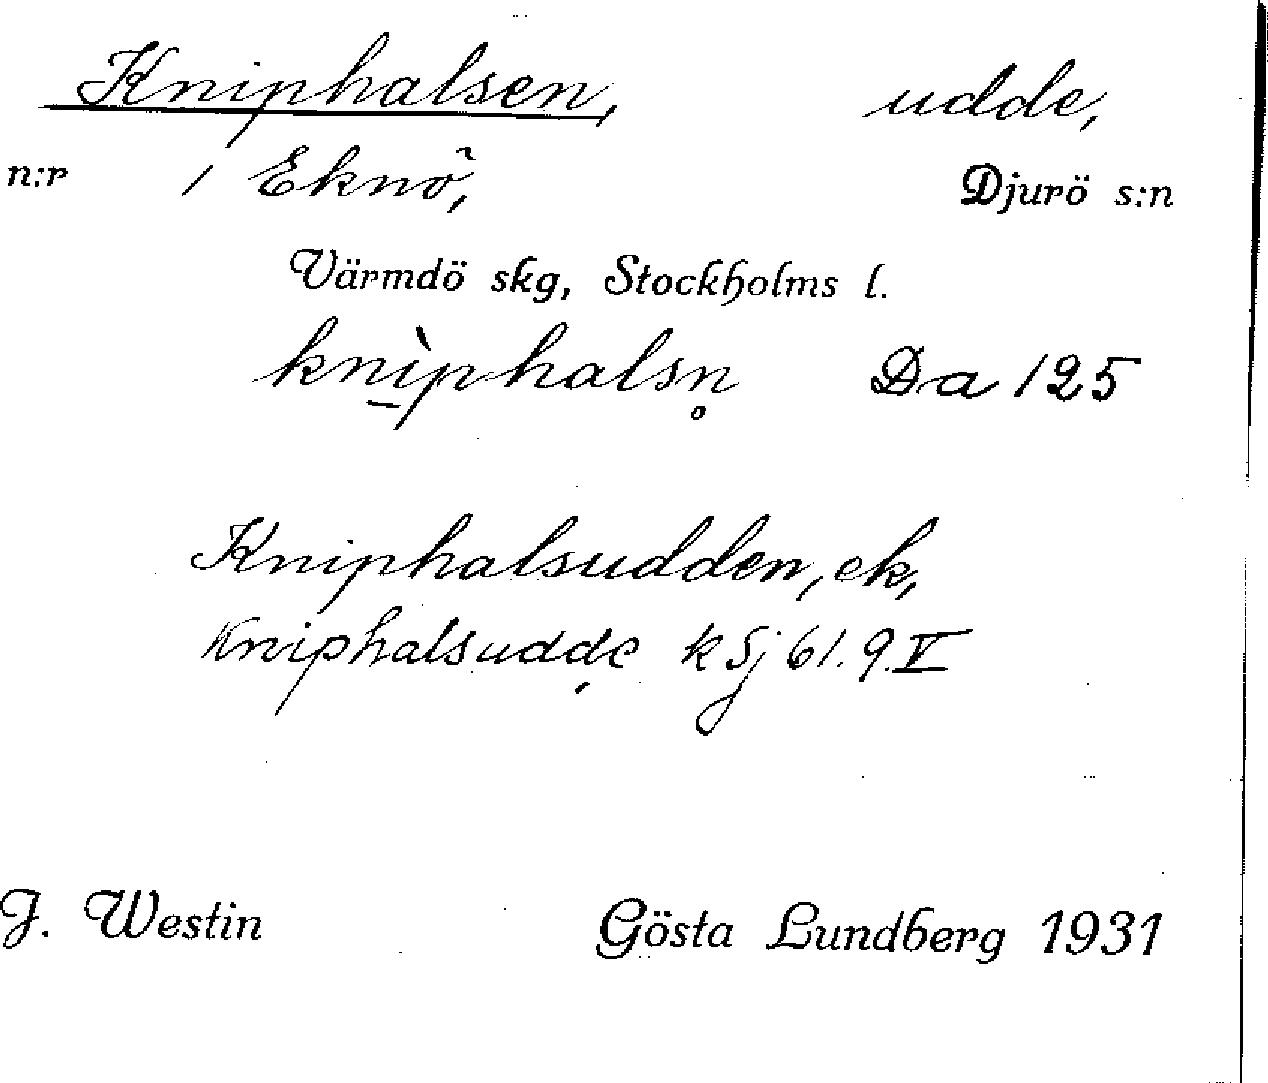 Kniphalsen, udde,
n:r 1 Eknö, Djurö s:n
Värmdö skg, Stockholms l.
knì̱phalsn̥ Da 125
Kniphalsudden, ek,
Kniphalsudde k Sj 61. 9. V
J. Westin Gösta Lundberg 1931